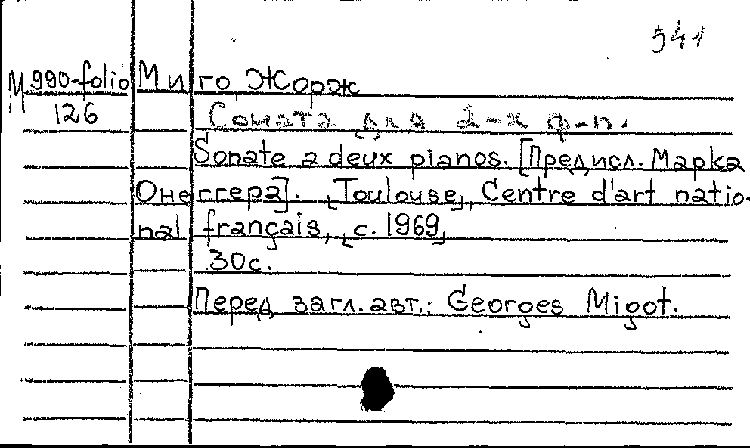 541
М 990-folio Миго Жорж
126 Соната для 2-х ф-п.
Sonate a deux pianos. [Предисл. Марка
Онеггера]. [Toulouse], Centre d'art natio-
nal français, [c. 1969]
30с.
Перед загл. авт.: Georges Migot.